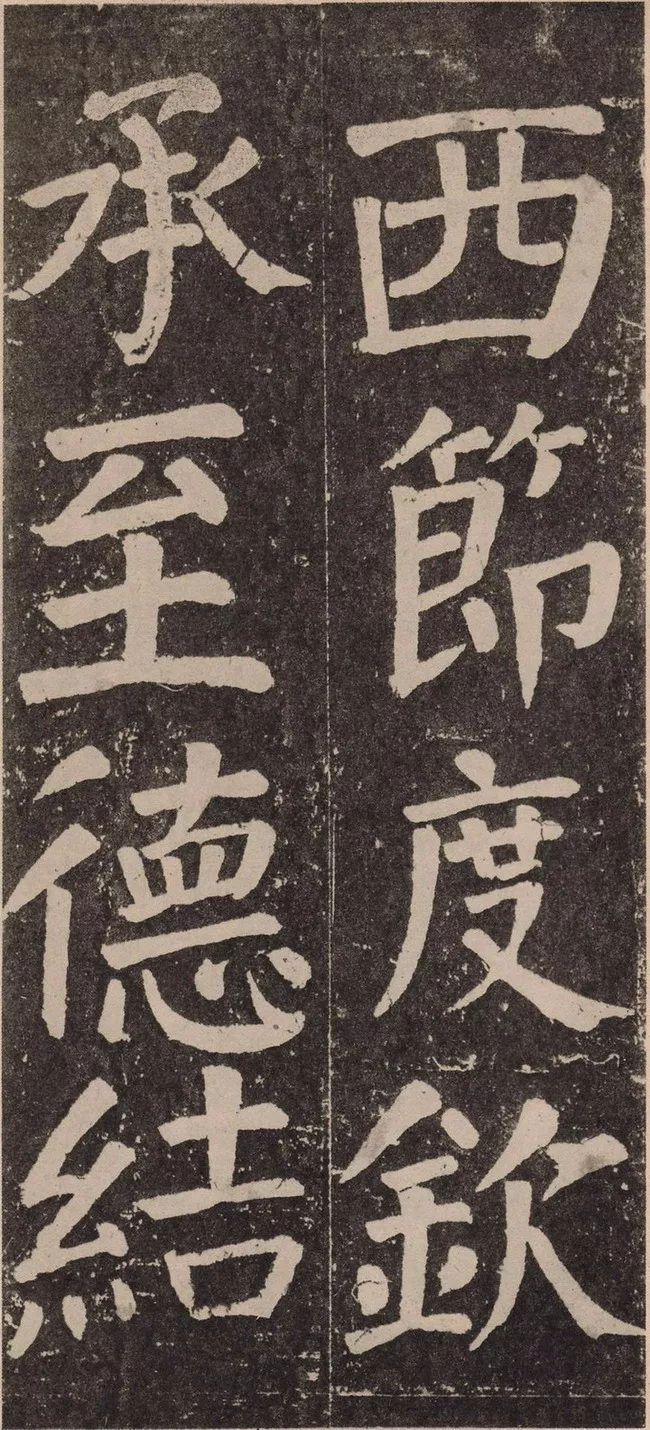 西節度欽
承至德結